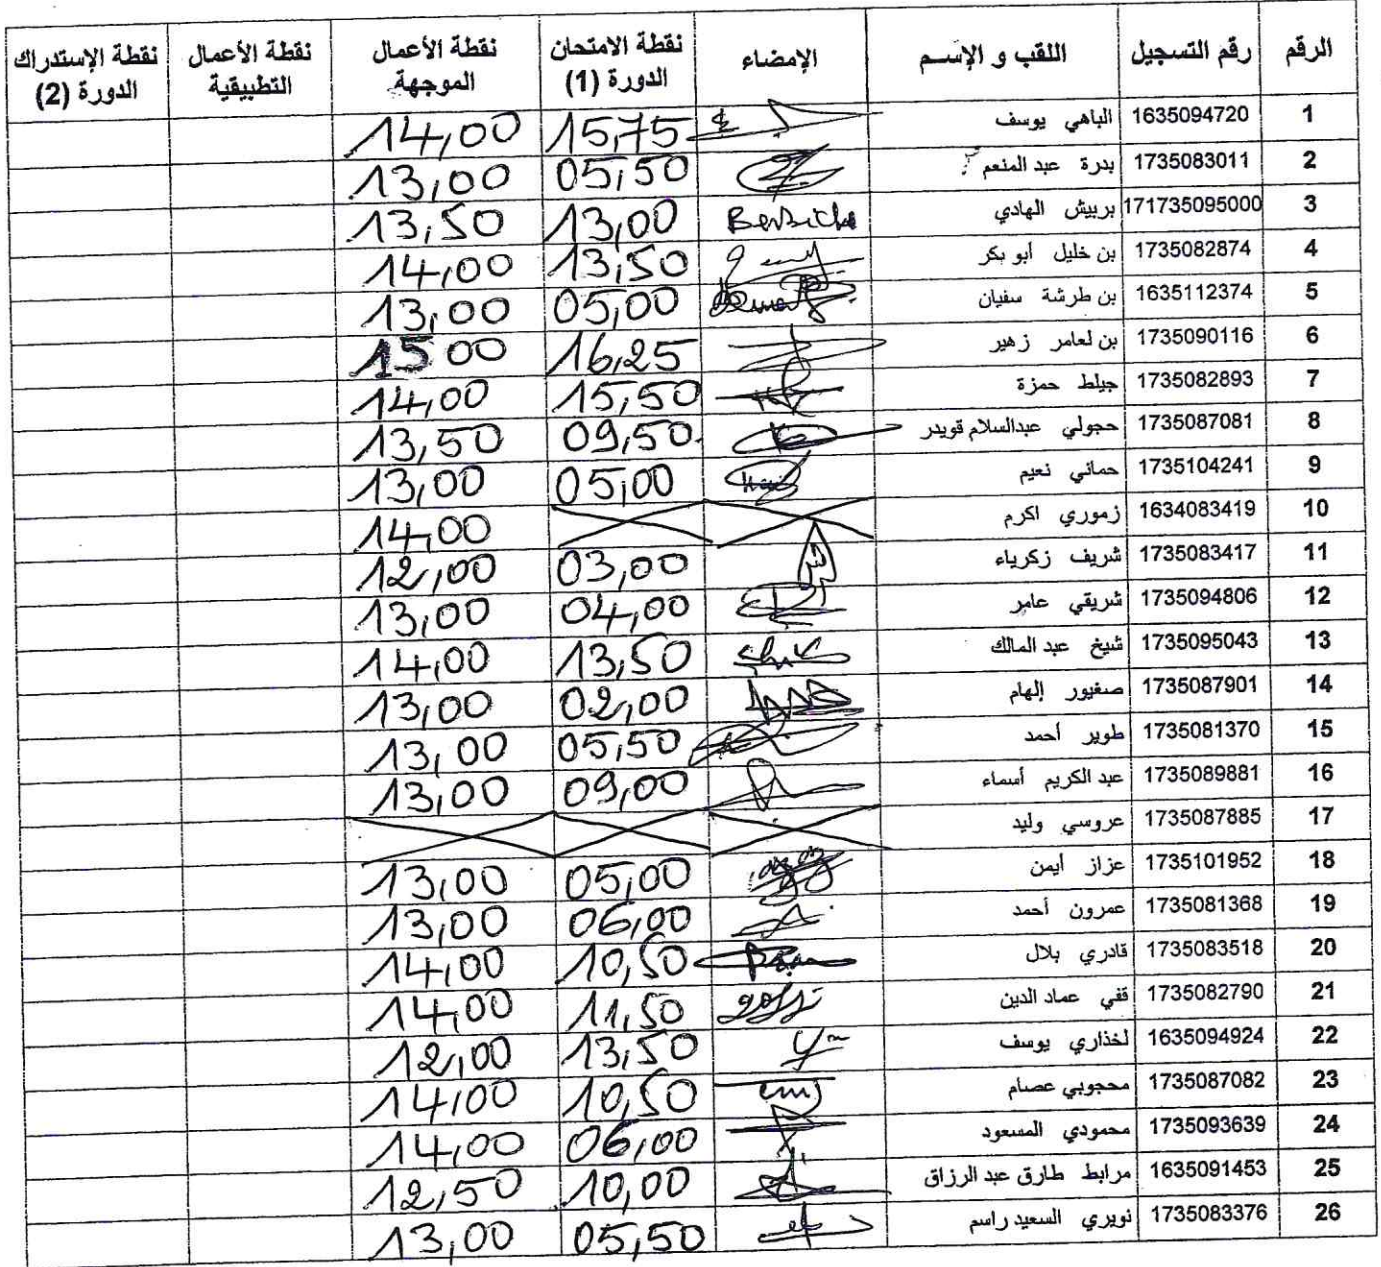 الرقم رقم التسجيل اللقب و الإسم الإمضاء نقطة الامتحان الدورة (1) نقطة الأعمال الموجهة نقطة الأعمال التطبيقية نقطة الإستدراك الدورة (2)
1 1635094720 الباهي يوسف 15,75 14,00
2 1735083011 بدرة عبد المنعم 05,50 13,00
3 171735095000 بربيش الهادي 13,00 13,50
4 1735082874 بن خليل أبو بكر 13,50 14,00
5 1635112374 بن طرشة سفيان 05,00 13,00
6 1735090116 بن لعامر زهير 16,25 15 00
7 1735082893 جيلط حمزة 15,50 14,00
8 1735087081 حجولي عبدالسلام قويدر 09,50 13,50
9 1735104241 حماني نعيم 05,00 13,00
10 1634083419 زموري اكرم 14,00
11 1735083417 شريف زكرياء 03,00 12,00
12 1735094806 شريقي عامر 04,00 13,00
13 1735095043 شيخ عبد المالك 13,50 14,00
14 1735087901 صغيور إلهام 02,00 13,00
15 1735081370 طوير أحمد 05,50 13,00
16 1735089881 عبد الكريم أسماء 09,00 13,00
17 1735087885 عروسي وليد
18 1735101952 عزاز أيمن 05,00 13,00
19 1735081368 عمرون أحمد 06,00 13,00
20 1735083518 قادري بلال 10,50 14,00
21 1735082790 قفي عماد الدين 11,50 14,00
22 1635094924 لخذاري يوسف 13,50 12,00
23 1735087082 محجوبي عصام 10,50 14,00
24 1735093639 محمودي المسعود 06,00 14,00
25 1635091453 مرابط طارق عبد الرزاق 10,00 12,50
26 1735083376 نويري السعيد راسم 05,50 13,00